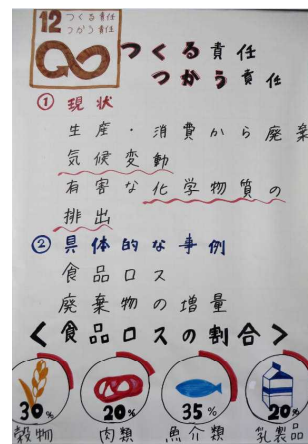 12 つくる責任
つかう責任
つくる責任
つかう責任
① 現状
生産・消費から廃棄
気候変動
有害な化学物質の
排出
② 具体的な事例
食品ロス
廃棄物の増量
<食品ロスの割合>
30% 20% 35% 20%
穀物 肉類 魚介類 乳製品